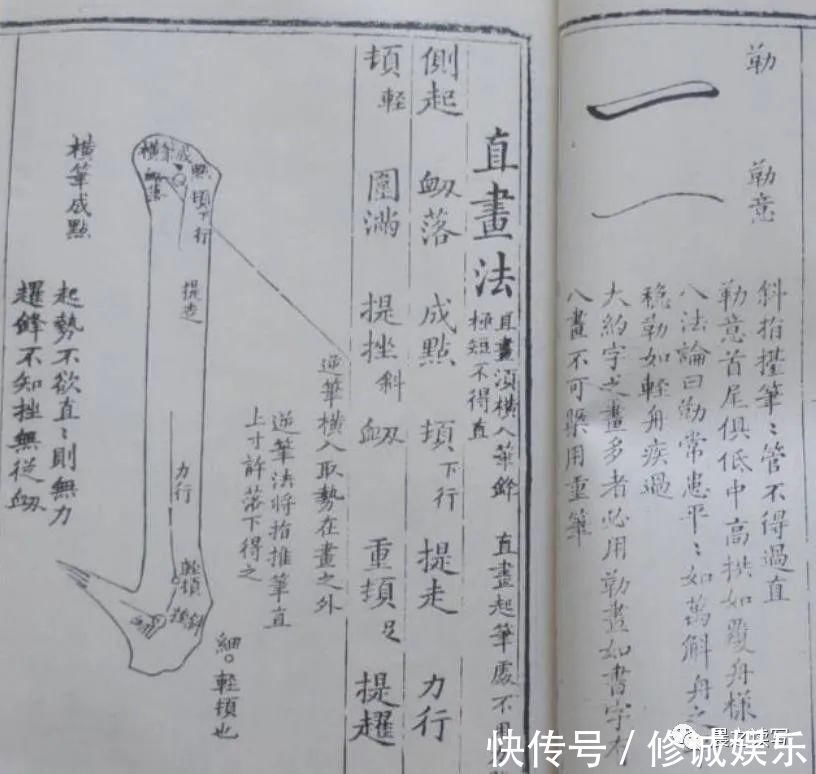 勒
勒意
斜指𢹂筆〻管不得過直
勒意首尾俱低中高拱如覆舟樣
八法論曰勒常患平〻如萬斛舟之
穩勒如輕舟疾過
大約字之畫多者必用勒畫如書字
八畫不可槩用重筆
直畫法
直畫須橫入筆鋒
極短不得直
直畫起筆處不
側起 衂落 成點 頓下行 提走 力行
頓輕 圓滿 提挫斜衂 重頓足 提趯
逆筆橫入取勢在畫之外
逆筆法將指推筆直
上寸許落下得之
橫筆成點
衂落
頓下行
提走
力行
輕頓
挫斜
細。輕頓也
橫筆成點
起勢不欲直〻則無力
趯鋒不知挫無從衂
快传号 / 修诚娱乐